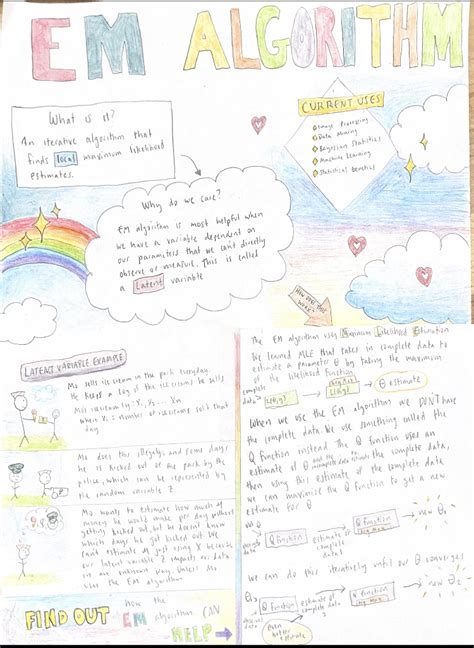 EM ALGORITHM
What is it?
An iterative algorithm that
finds local maximum likelihood
estimates.
CURRENT USES
Image Processing
Data Mining
Bayesian Statistics
Machine Learning
Statistical Genetics
Why do we care?
EM algorithm is most helpful when
we have a variable dependent on
our parameters that we can't directly
observe or measure. This is called
a latent variable
How does that
work?
LATENT VARIABLE EXAMPLE
Mo sells ice cream in the park everyday.
He keeps a log of the icecreams he sells
Mo's icecream log: X1, X2, ... Xn
where Xi = number of icecreams sold that
day
Mo does this illegaly, and some days
he is kicked out of the park by the
police, which can be represented by
the random variable Z
Mo wants to estimate how much
money he would make per day without
getting kicked out, but he doesn't know
which days he got kicked out. We
can't estimate θ just using X because
our latent variable Z impacts our data
in an unknown way. Unless Mo
uses the EM algorithm
FIND OUT how the
EM algorithm CAN
HELP
The EM algorithm uses Maximum Likelihood Estimation
We learned MLE that takes in complete data to
estimate a parameter θ by taking the maximum
of the likelihood function
complete
data
θ estimate
When we use the EM algorithm we DON'T have
the complete data. We use something called the
Q function instead. The Q function uses an
estimate of θ and the incomplete data to estimate the complete data,
then using this estimate of the complete data
we can maximise the Q function to get a new
estimate for θ
Q function
estimate of
complete
data
Q function
new θ2
We can do this iteratively until our θ converges
Q function
estimate of
complete
data 2
Q function
new θ3
even
better
estimate